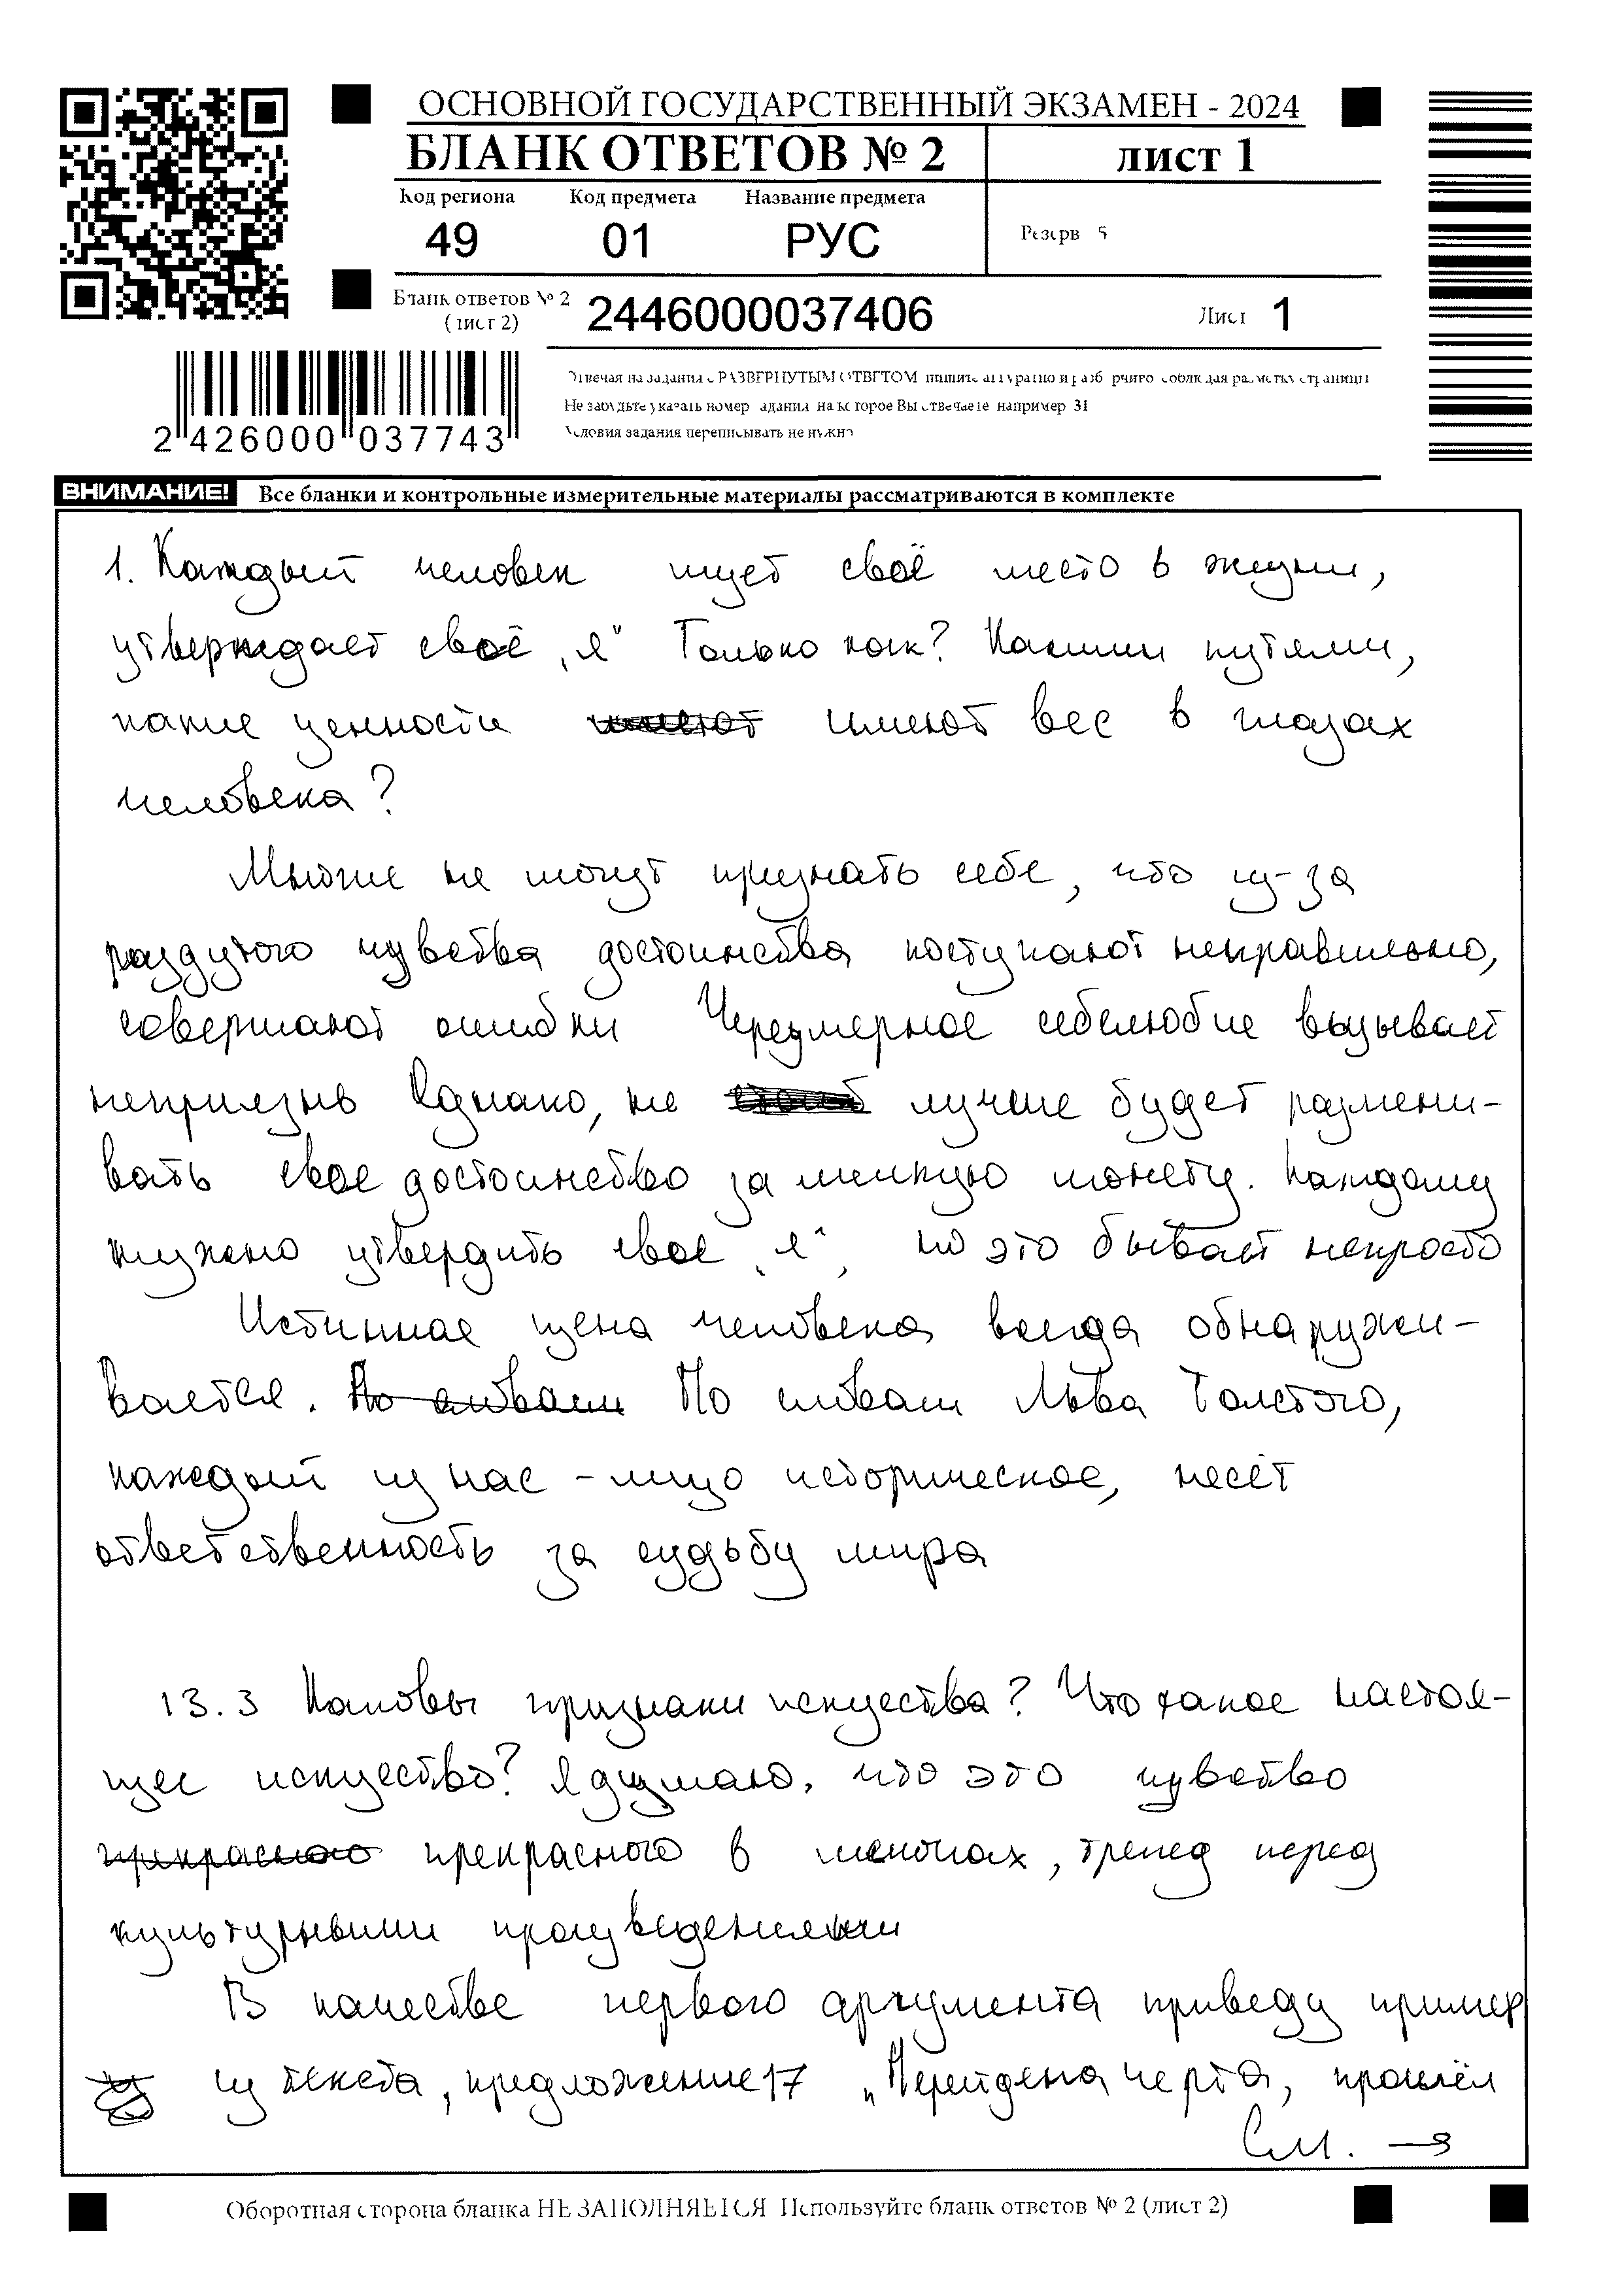 ОСНОВНОЙ ГОСУДАРСТВЕННЫЙ ЭКЗАМЕН - 2024
БЛАНК ОТВЕТОВ № 2
лист 1
Код региона Код предмета Название предмета
49 01 РУС
Резерв 5
Бланк ответов № 2 (лист 2) 2446000037406
Лист 1
2 426000 037743
Отвечая на задания с РАЗВЕРНУТЫМ ОТВЕТОМ пишите аккуратно и разборчиво соблюдая разметку страницы
Не забудьте указать номер задания на которое Вы отвечаете например 31
Условия задания переписывать не нужно
ВНИМАНИЕ! Все бланки и контрольные измерительные материалы рассматриваются в комплекте
1. Каждый человек ищет своё место в жизни,
утверждает своё „я" Только как? Какими путями,
какие ценности имеют вес в глазах
человека?
Многие не могут признать себе, что из-за
раздутого чувства достоинства поступают неправильно,
совершают ошибки Чрезмерное себялюбие вызывает
неприязнь Однако, не лучше будет размени-
вать свое достоинство за мелкую монету. Каждому
нужно утвердить свое „я", но это бывает непросто
Истинная цена человека всегда обнаружи-
вается. По словам Льва Толстого,
каждый из нас - лицо историческое, несёт
ответственность за судьбу мира
13.3 Каковы признаки искуства? Что такое настоя-
щее искуство? Я думаю, что это чувство
прекрасного в мелочах, трепед перед
культурными произведениями
В качестве первого аргумента приведу пример
из текста, предложение 17 „Перейдена черта, прошёл
См. →
Оборотная сторона бланка НЕ ЗАПОЛНЯЕТСЯ Используйте бланк ответов № 2 (лист 2)